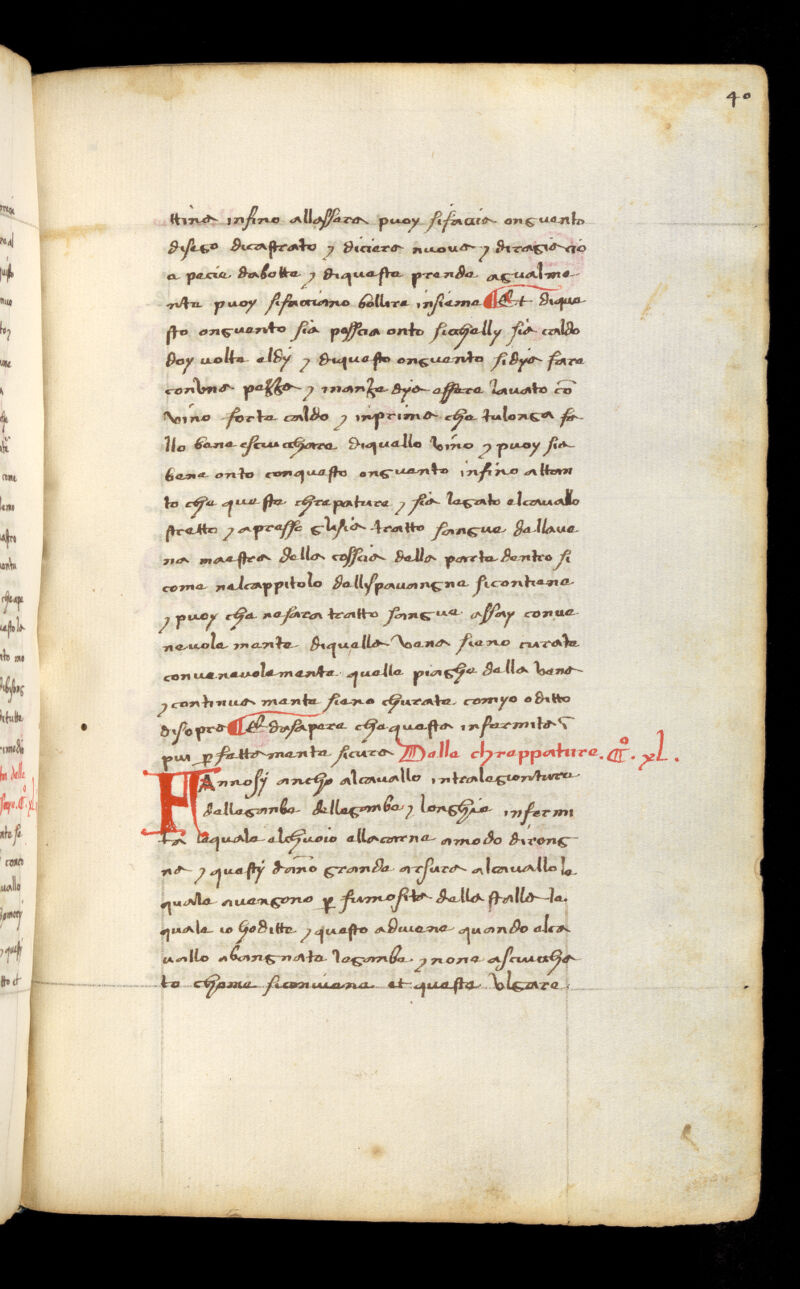 40
ttina infino allassera puoy sifacia onguento
disego dicastrato ⁊ diciera nuova ⁊ diragia cio
e pecie dabotte ⁊ diqueste prende agualme
nte puoy sifacciano bollire insieme Et dique
sto onguento sia posscia onto sichelly sia caldo
doy volte eldy ⁊ diquesto onguento sidya fare
conuna pezza ⁊ inanze dya essere lavato cō
vino forte caldo ⁊ inprima che tulonga fa
llo bene esciuchare diquello vino ⁊ puoy sia
bene onto conquesto onguento infino attan
to che queste chrepature ⁊ sia legato elcavallo
stretto ⁊ apresso glisia tratto sangue dellave
na maestra della cosscia della parte dentro si
come nelcappitolo dellispavangne sicontiene
⁊ puoy che nesara tratto sangue assay conve
nevole mente diquella vena sieno curate
convenevolemente quelle piaghe della vena
⁊ continua mente sieno churate comyo oditto
disopra Et dasapere che questa infermita
pui ꝑfettamente sicura Delle chreppature. C°. xl.
FAnnosy ancho alcavallo intralegionture
dellegambe dellegambe ⁊ longhie infermi
ta laquale elchuoio ellacarne amodo dirong
na ⁊ questy dāno grande arsura alcavallo le
quale avengono ꝑ fumosita della stalla la
quale io hoditte ⁊ questo adviene quando elca
vallo abangnate legambe ⁊ none asciucha
to chome siconviene et questa vlgare